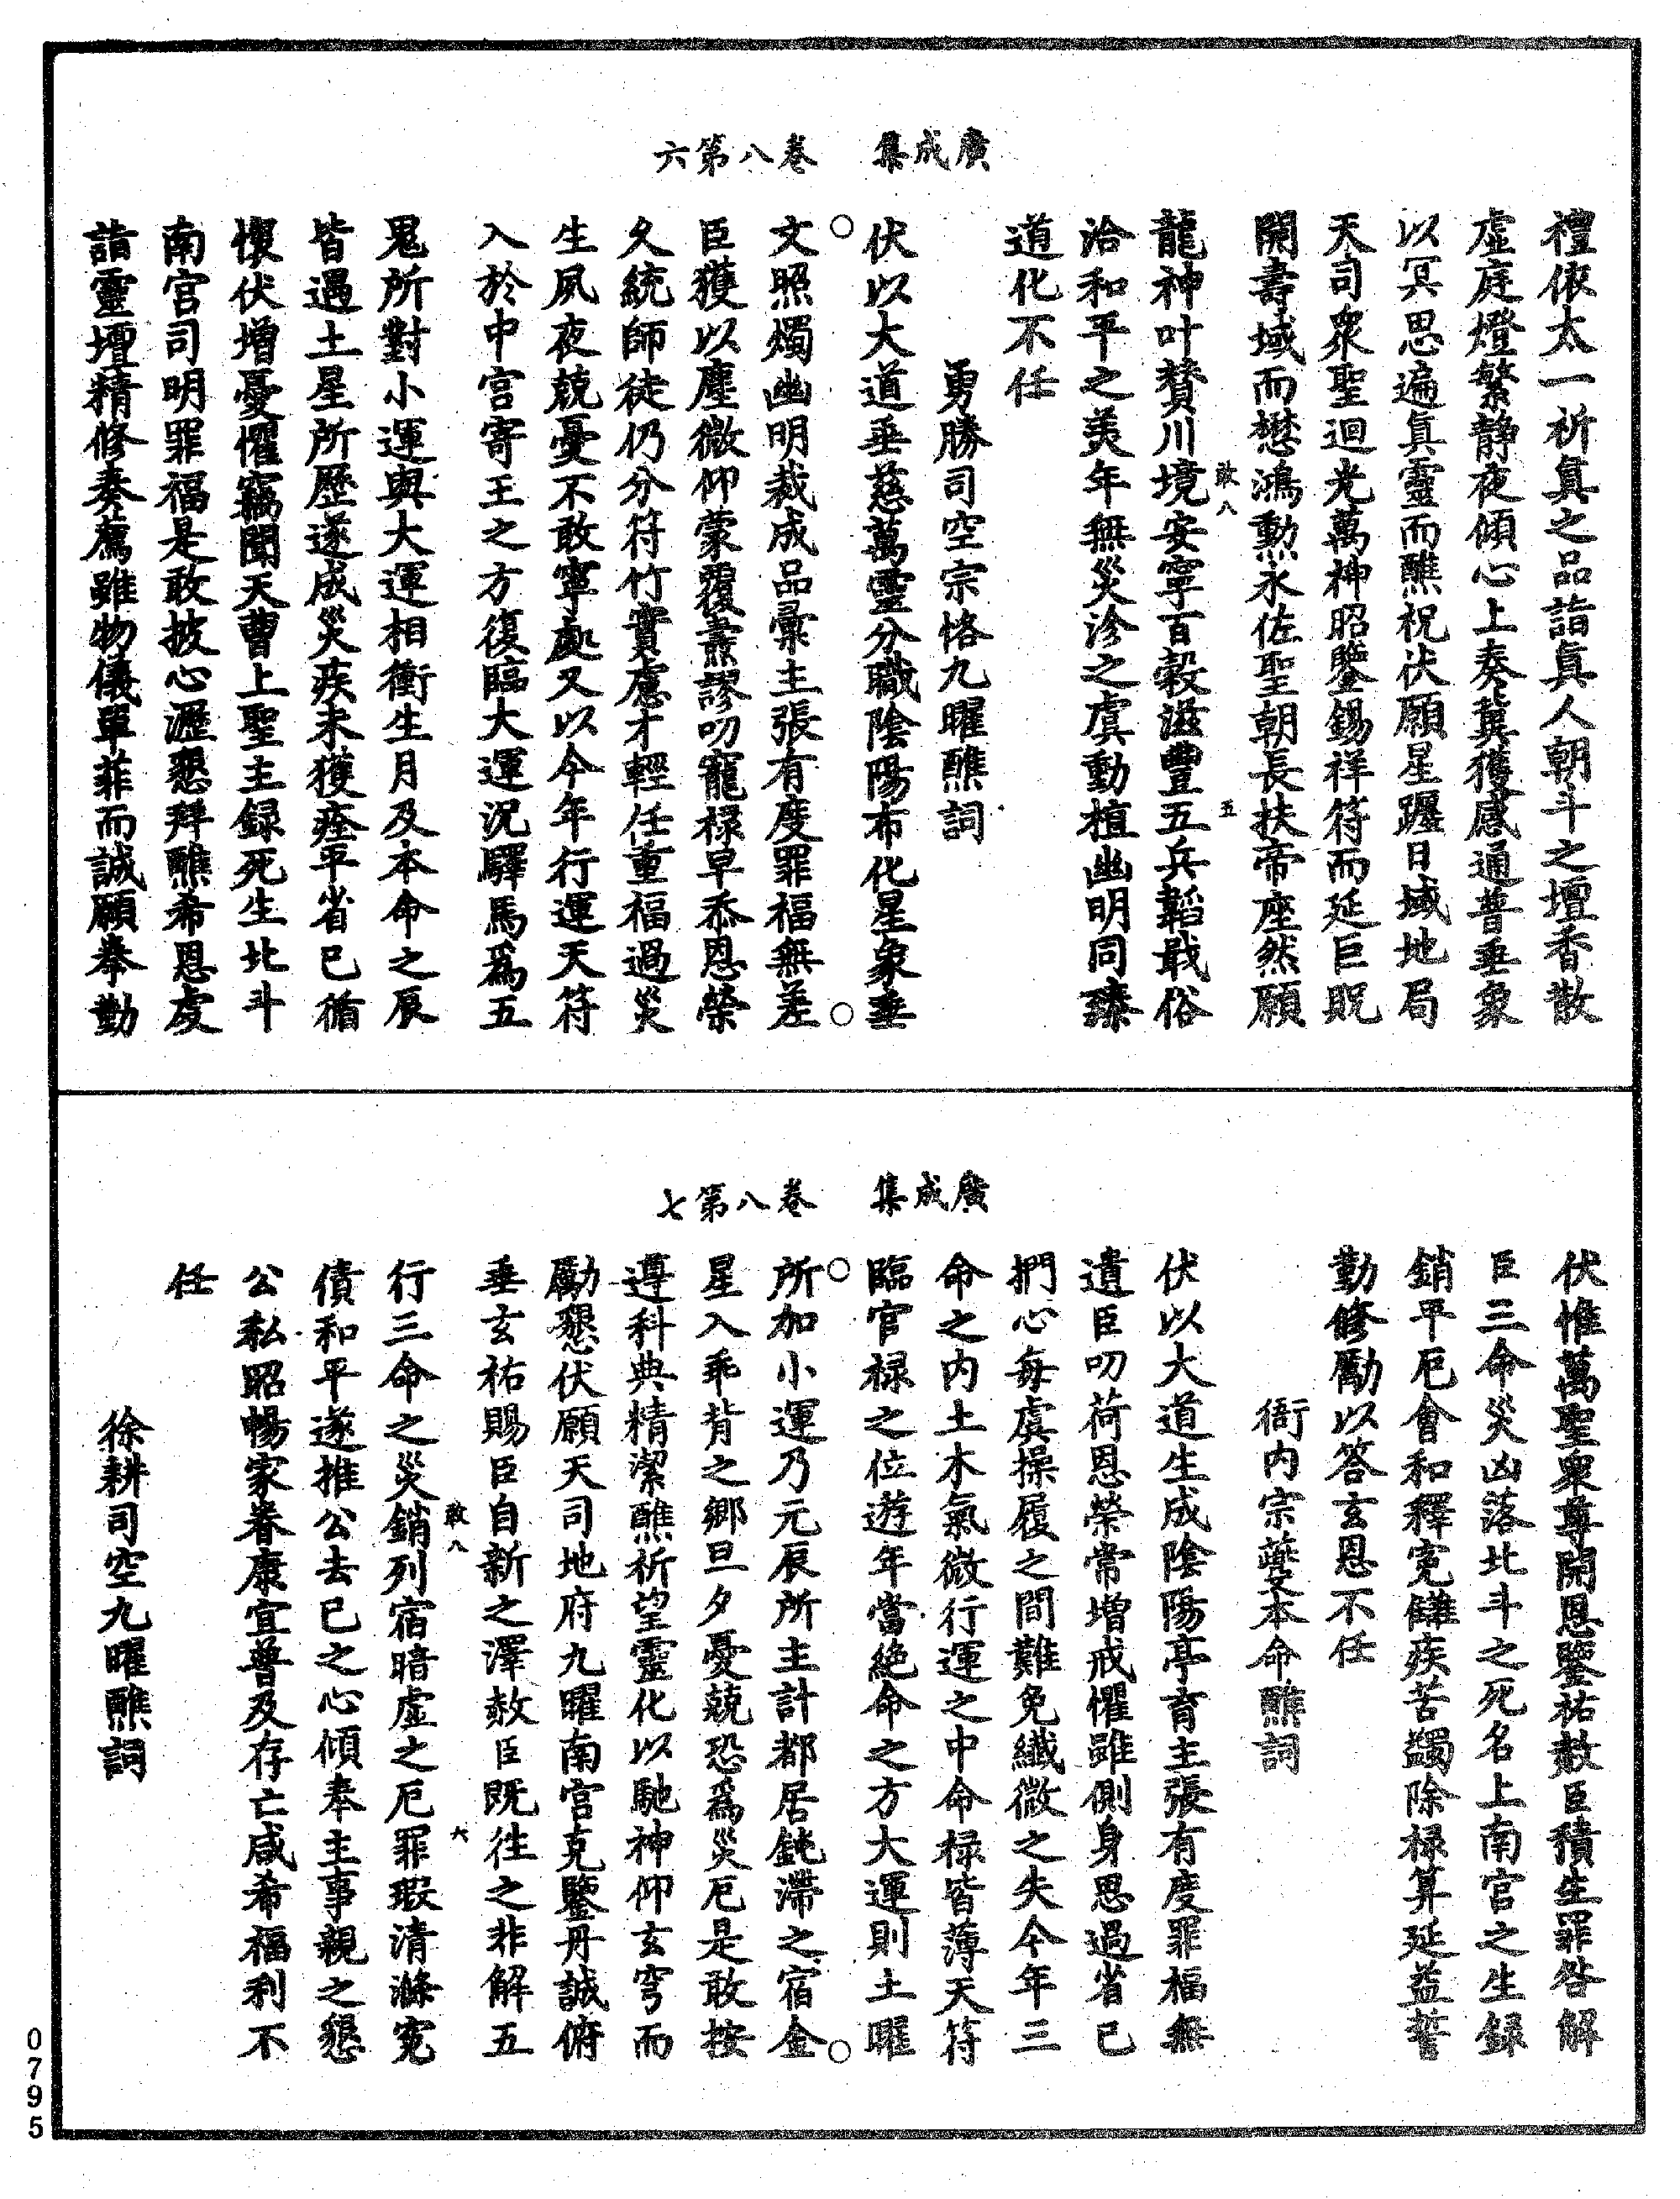 廣成集　卷八第六
禮依太一祈真之品詣真人朝斗之壇香散
虛庭燈繁静夜傾心上奏兾獲感通普垂象
以冥思遍真靈而醮祝伏願星躔日域地局
天司衆聖迴光萬神昭鑒錫祥符而延巨貺
開壽域而懋鴻勳永佐聖朝長扶帝座然願
敢八　五
龍神叶賛川境安寧百穀滋豐五兵韜戢俗
洽和平之美年無災沴之虞動植幽明同臻
道化不任
勇勝司空宗恪九曜醮詞
伏以大道垂慈萬靈分職陰陽布化星象垂
文照燭幽明裁成品彙主張有度罪福無差
臣獲以塵微仰蒙覆燾謬叨寵禄早忝恩榮
久統師徒仍分符竹實慮才輕任重福過災
生夙夜兢憂不敢寧處又以今年行運天符
入於中宮寄王之方復臨大運況驛馬爲五
鬼所對小運與大運相衝生月及本命之辰
皆遇土星所歷遂成災疾未獲痊平省已循
懷伏增憂懼竊聞天曹上聖主録死生北斗
南宮司明罪福是敢披心瀝懇拜醮希恩虔
詣靈壇精修奏薦雖物儀單菲而誠願拳勤
廣成集　卷八第七
伏惟萬聖衆尊開恩鑒祐赦臣積生罪咎解
臣三命災凶落北斗之死名上南宮之生録
銷平厄會和釋寃讎疾苦蠲除禄算延益誓
勤修勵以答玄恩不任
衙内宗夔本命醮詞
伏以大道生成陰陽亭育主張有度罪福無
遺臣叨荷恩榮常增戒懼雖側身思過省已
捫心每虞操履之間難免纖微之失今年三
命之内土木氣微行運之中命禄皆薄天符
臨官禄之位遊年當絶命之方大運則土曜
所加小運乃元辰所主計都居鈍滯之宿金
星入乖背之鄉旦夕憂兢恐爲災厄是敢按
遵科典精潔醮祈望靈化以馳神仰玄穹而
勵懇伏願天司地府九曜南宮克鑒丹誠俯
垂玄祐賜臣自新之澤赦臣既徃之非解五
敢八　六
行三命之災銷列宿暗虛之厄罪瑕清滌寃
債和平遂推公去已之心傾奉主事親之懇
公私昭暢家眷康宜普及存亡咸希福利不
任
徐耕司空九曜醮詞
0795